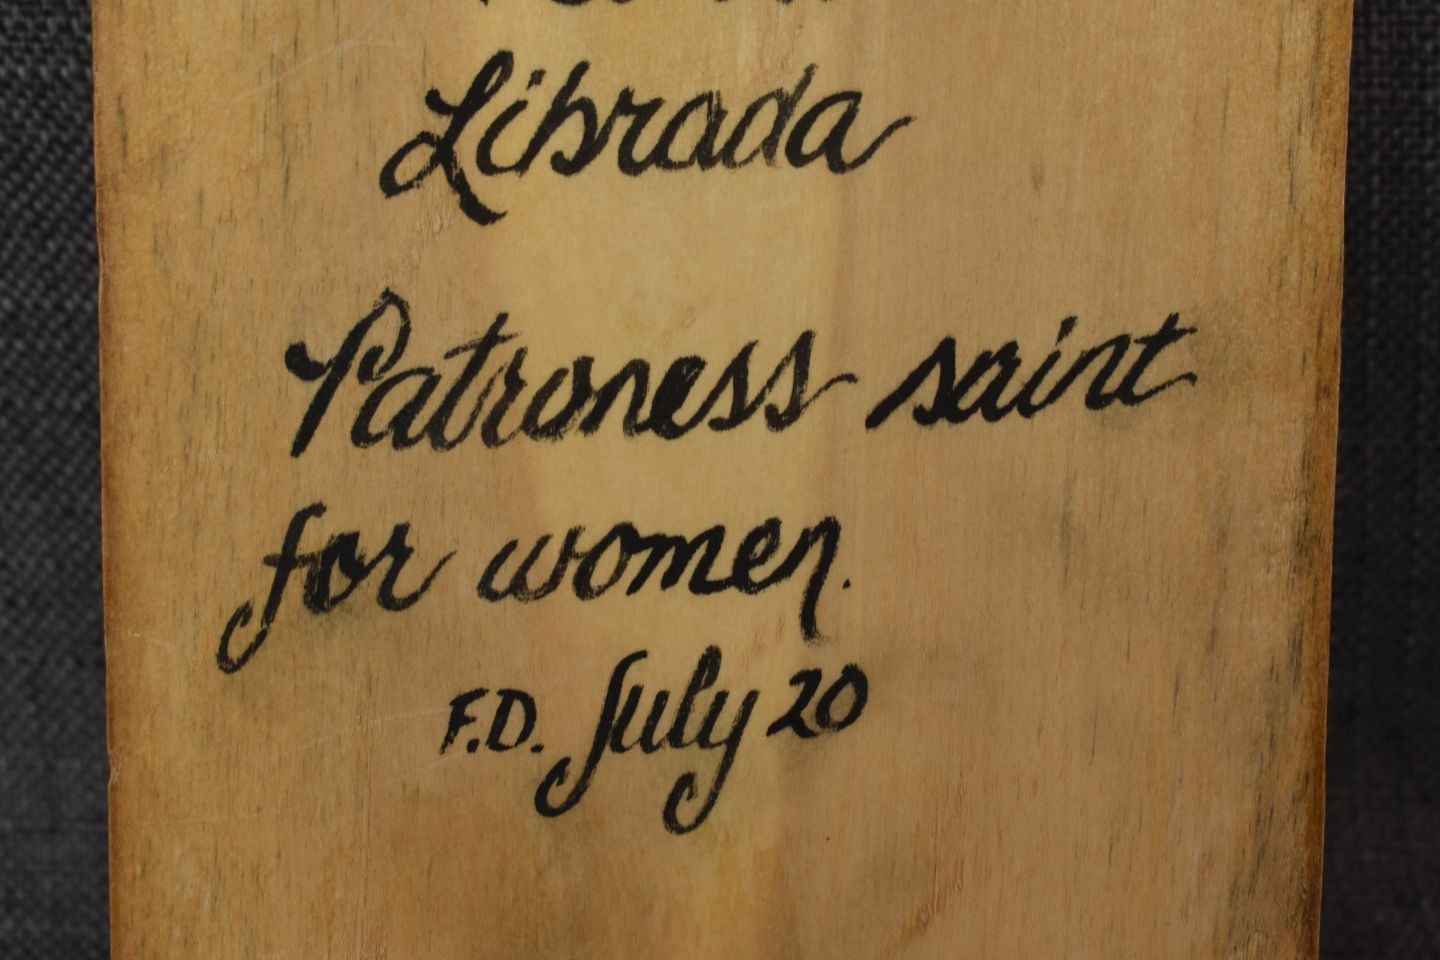 Librada
Patroness saint
for women.
F.D. July 20